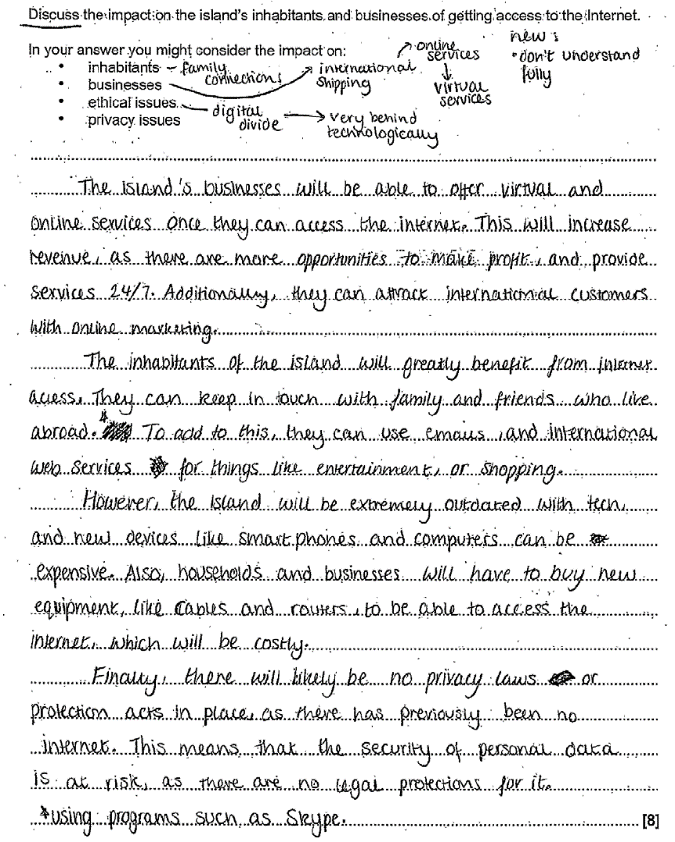 Discuss the impact on the island's inhabitants and businesses of getting access to the Internet.
In your answer you might consider the impact on:
• inhabitants – family connections
• businesses → international shipping → online services → virtual services
• ethical issues – digital divide → very behind technologically
• privacy issues
new:
• don't understand fully
The island's businesses will be able to offer virtual and
online services once they can access the internet. This will increase
revenue, as there are more opportunities to make profit, and provide
services 24/7. Additionally, they can attract international customers
with online marketing.
The inhabitants of the island will greatly benefit from internet
access. They can keep in touch with family and friends who live
abroad.* To add to this, they can use emails, and international
web services for things like entertainment, or shopping.
However, the island will be extremely outdated with tech,
and new devices like smartphones and computers can be
expensive. Also, households and businesses will have to buy new
equipment, like cables and routers, to be able to access the
internet, which will be costly.
Finally, there will likely be no privacy laws or
protection acts in place, as there has previously been no
internet. This means that the security of personal data
is at risk, as there are no legal protections for it.
*using programs such as Skype.
[8]